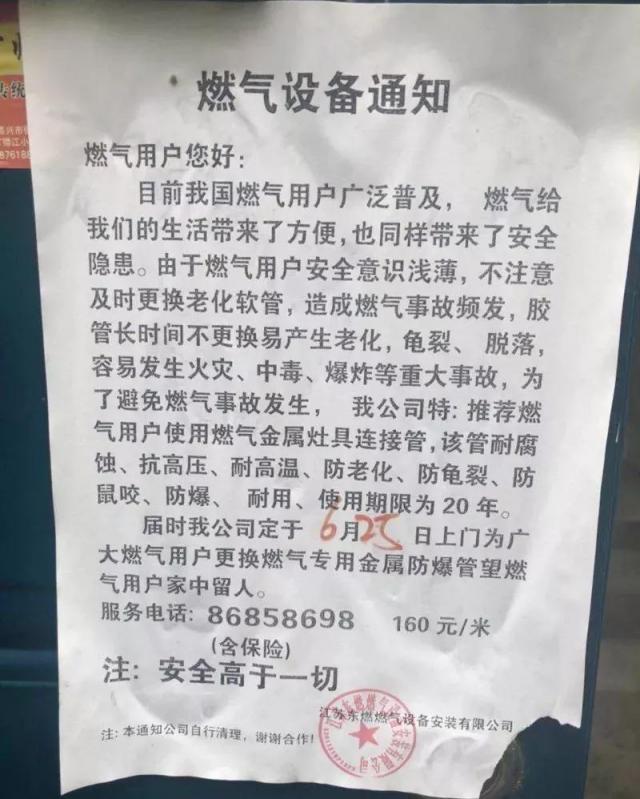 燃气设备通知
燃气用户您好:
目前我国燃气用户广泛普及, 燃气给
我们的生活带来了方便,也同样带来了安全
隐患。由于燃气用户安全意识浅薄,不注意
及时更换老化软管,造成燃气事故频发,胶
管长时间不更换易产生老化,龟裂、脱落,
容易发生火灾、中毒、爆炸等重大事故,为
了避免燃气事故发生, 我公司特:推荐燃
气用户使用燃气金属灶具连接管,该管耐腐
蚀、抗高压、耐高温、防老化、防龟裂、防
鼠咬、防爆、耐用、使用期限为20年。
届时我公司定于6月25日上门为广
大燃气用户更换燃气专用金属防爆管望燃
气用户家中留人。
服务电话:86858698 160元/米
(含保险)
注:安全高于一切
江苏东燃燃气设备安装有限公司
注:本通知公司自行清理,谢谢合作!